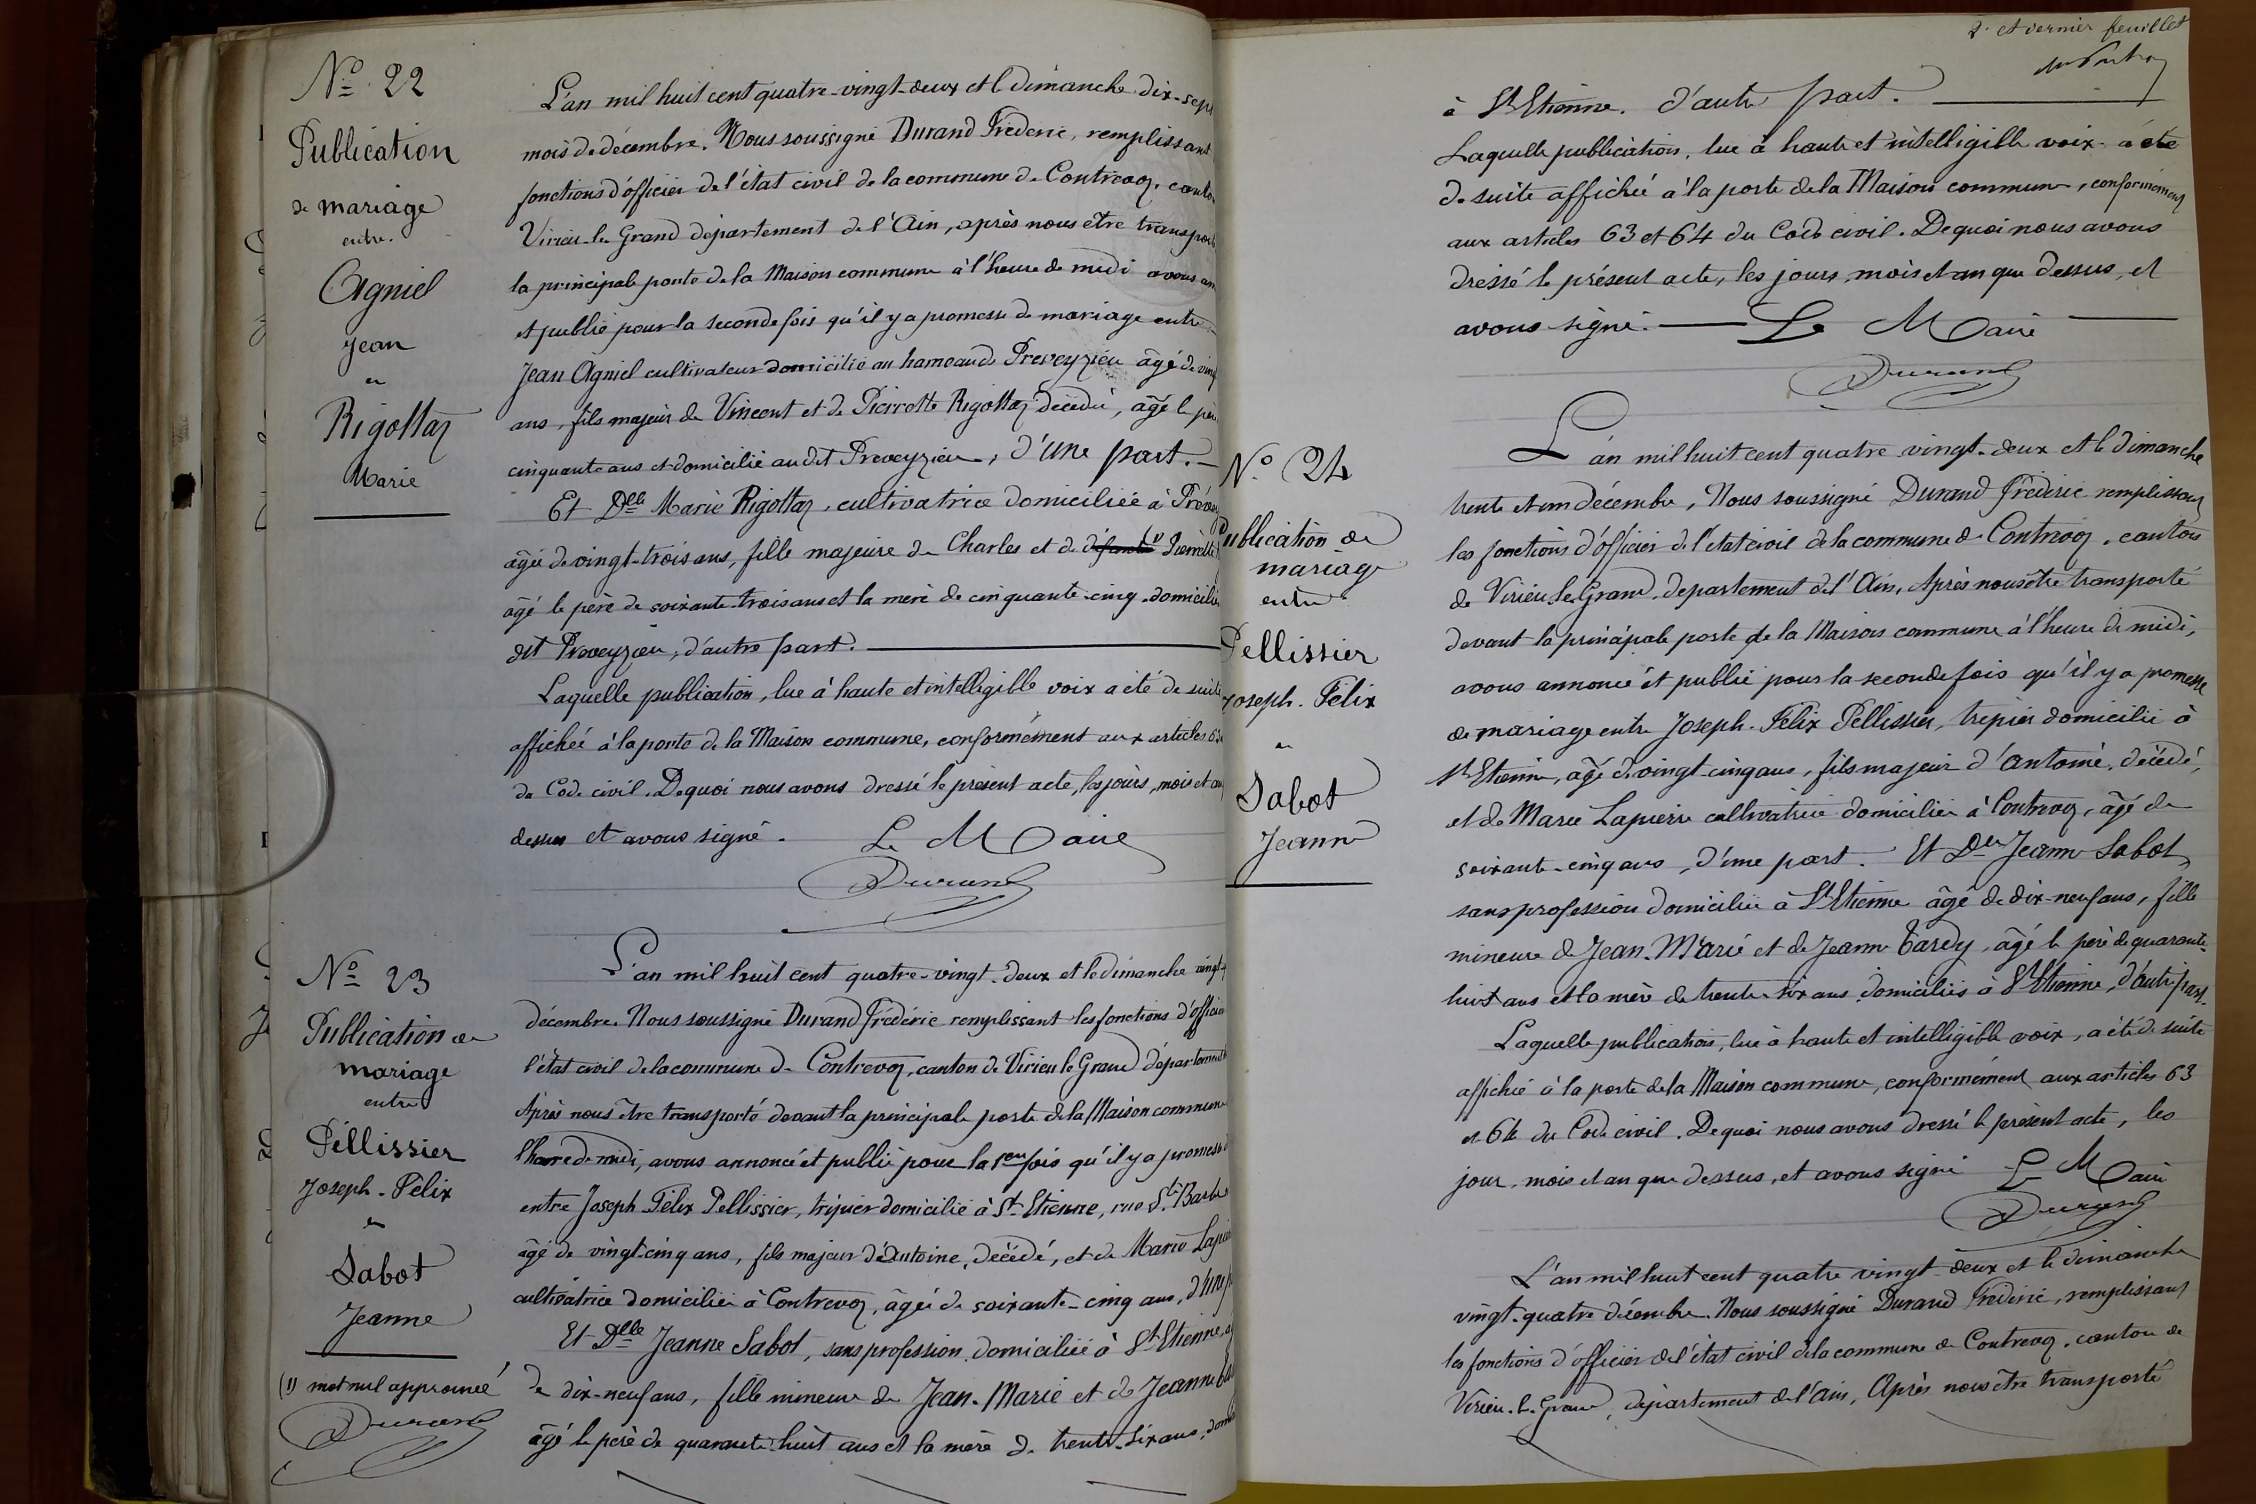 Nº 22
Publication
de mariage
entre
Agniel
Jean
et
Rigottaz
Marie
L'an mil huit cent quatre-vingt-deux et le dimanche dix-sept
mois de décembre. Nous soussigné Durand Frédéric, remplissant
fonctions d'officier de l'état civil de la commune de Contrevoz, canton
Virieu-le-Grand département de l'Ain, après nous être transporté
la principale porte de la Maison commune à l'heure de midi avons
et publié pour la seconde fois qu'il y a promesse de mariage entre
Jean Agniel cultivateur domicilié au hameau de Preveyzieu âgé de
ans, fils majeur de Vincent et de Pierrotte Rigottaz décédé, âgé le père
cinquante ans et domicilié au dit Preveyzieu, d'une part.
Et Dlle Marie Rigottaz, cultivatrice domiciliée à
âgée de vingt-trois ans, fille majeure de Charles et de défunte (1)
âgé le père de soixante-trois ans et la mère de cinquante-cinq, domiciliés
dit Preveyzieu, d'autre part.
Laquelle publication, lue à haute et intelligible voix a été de suite
affichée à la porte de la Maison commune, conformément aux articles 63
du Code civil. De quoi nous avons dressé le présent acte, les jours, mois et an
dessus et avons signé. Le Maire
Durand
Nº 23
Publication de
mariage
entre
Péllissier
Joseph-Félix
et
Sabot
Jeanne
(1) mot nul approuvé
Durand
L'an mil huit cent quatre-vingt-deux et le dimanche vingt-
décembre. Nous soussigné Durand Frédéric remplissant les fonctions d'officier
l'état civil de la commune de Contrevoz, canton de Virieu le Grand département
Après nous être transporté devant la principale porte de la Maison commune
l'heure de midi, avons annoncé et publié pour la 1ere fois qu'il y a promesse
entre Joseph Félix Pellissier, tripier domicilié à St Etienne, rue Ste Barbe
âgé de vingt-cinq ans, fils majeur d'Antoine, décédé, et de Marie
cultivatrice domiciliée à Contrevoz, âgée de soixante-cinq ans, d'une
Et Dlle Jeanne Sabot, sans profession domiciliée à St Etienne,
de dix-neuf ans, fille mineure de Jean-Marie et de Jeanne
âgé le père de quarante-huit ans et la mère de trente-six ans,
2e et dernier feuillet
à St Etienne. d'autre part.
Laquelle publication, lue à haute et intelligible voix a été
de suite affichée à la porte de la Maison commune, conformément
aux articles 63 et 64 du Code civil. De quoi nous avons
dressé le présent acte, les jours, mois et an que dessus, et
avons signé. Le Maire
Durand
Nº 24
Publication de
mariage
entre
Pellissier
Joseph-Félix
et
Sabot
Jeanne
L'an mil huit cent quatre vingt-deux et le dimanche
trente et un décembre, Nous soussigné Durand Frédéric remplissant
les fonctions d'officier de l'état civil de la commune de Contrevoz, canton
de Virieu le Grand, département de l'Ain, Après nous être transporté
devant la principale porte de la Maison commune à l'heure de midi,
avons annoncé et publié pour la seconde fois qu'il y a promesse
de mariage entre Joseph-Félix Pellissier, tripier domicilié à
St Etienne, âgé de vingt-cinq ans, fils majeur d'Antoine, décédé,
et de Marie Lapierre cultivatrice domiciliée à Contrevoz, âgé de
soixante-cinq ans, d'une part. Et Dlle Jeanne Sabot
sans profession domiciliée à St Etienne âgé de dix-neuf ans, fille
mineure de Jean-Marie et de Jeanne Tardy, âgé le père de quarante-
huit ans et la mère de trente-six ans domiciliés à St Etienne, d'autre part.
Laquelle publication, lue à haute et intelligible voix, a été de suite
affichée à la porte de la Maison commune, conformément aux articles 63
et 64 du Code civil. De quoi nous avons dressé le présent acte, les
jour, mois et an que dessus, et avons signé Le Maire
Durand
L'an mil huit cent quatre vingt-deux et le dimanche
vingt-quatre décembre. Nous soussigné Durand Frédéric, remplissant
les fonctions d'officier de l'état civil de la commune de Contrevoz, canton de
Virieu-le-Grand, département de l'Ain, Après nous être transporté